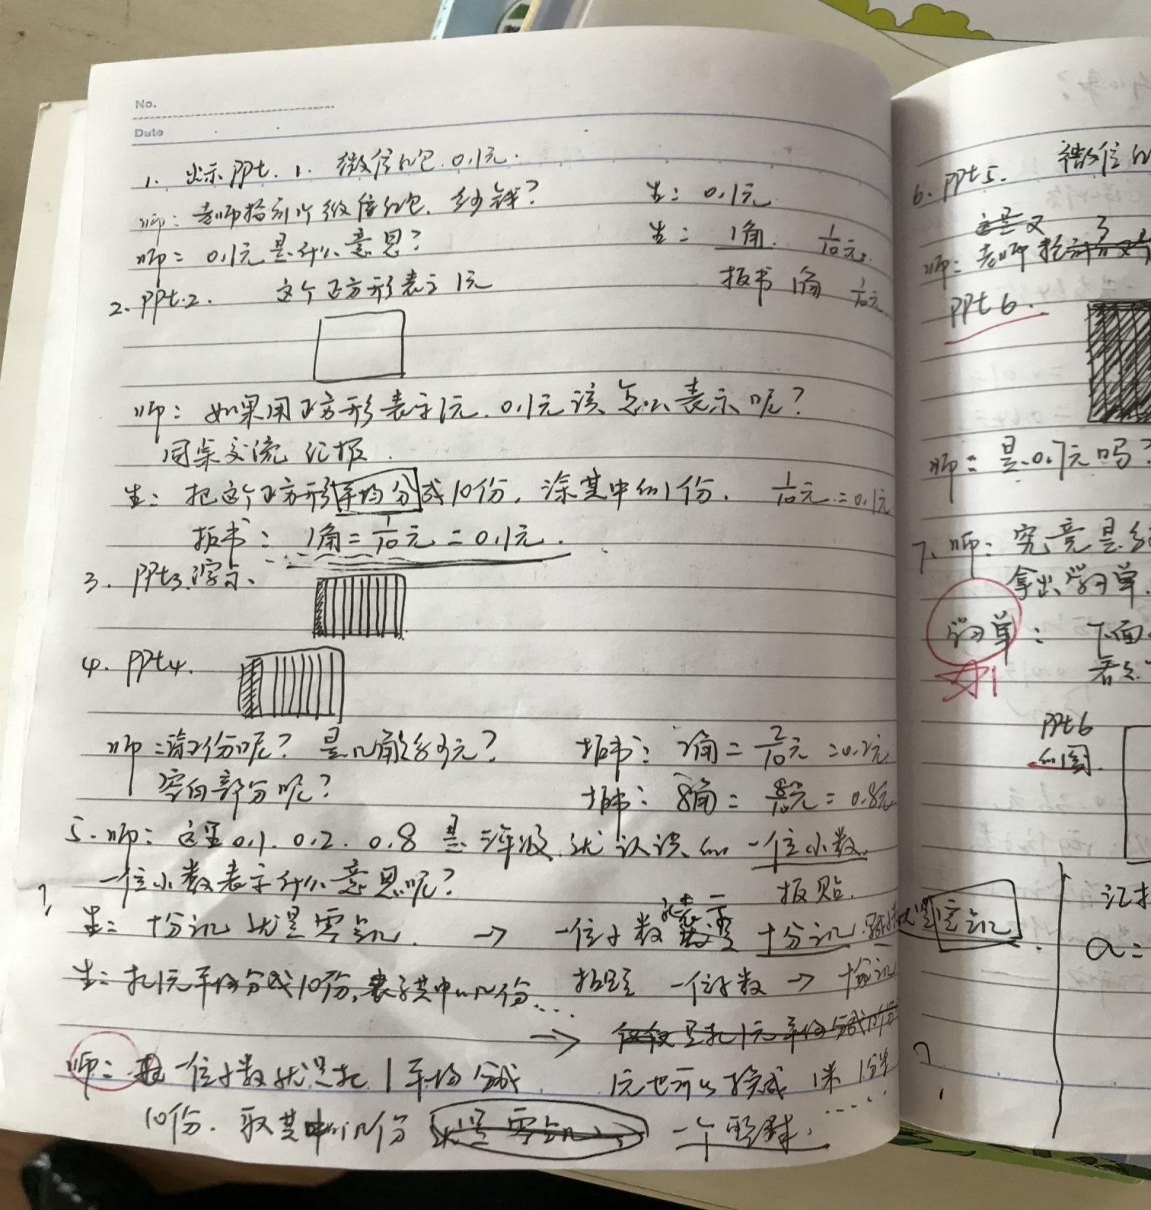 No.
Date
1. 出示PPt. 1. 微信红包 0.1元.
师: 老师抢到1个微信红包, 多少钱? 生: 0.1元
师: 0.1元是什么意思? 生: 1角. 1/10元.
2. PPt.2. 这个正方形表示1元 板书 1角 1/10元
师: 如果用正方形表示1元, 0.1元该怎么表示呢?
同桌交流 汇报.
生: 把这个正方形平均分成10份, 涂其中的1份. 1/10元=0.1元
板书: 1角=1/10元=0.1元.
3. PPt3.演示.
4. PPt4.
师: 涂2份呢? 是几角 多少元? 板书: 2角=2/10元=0.2元
空白部分呢? 板书: 8角=8/10元=0.8元
5. 师: 这里0.1. 0.2. 0.8 是三年级就认识的一位小数.
一位小数表示什么意思呢? 板贴.
?
生: 十分之几 就是零点几. → 一位小数 表示 十分之几
生: 把1元平均分成10份, 表示其中的几份... 一位小数 → 十分之几
→ 仅仅是把1元平均分成10份
师: 一位小数就是把1平均分成 1元也可以换成 1米 1分米
10份. 取其中的几份 就是零点几 一个
6. PPt5. 微信
这是又
师: 老师抢
PPt6.
师: 是0.7元吗?
7. 师: 究竟是多
拿出学习单.
学习单: 下面
1 看
PPt6
的图.
零点几
记
a=
?